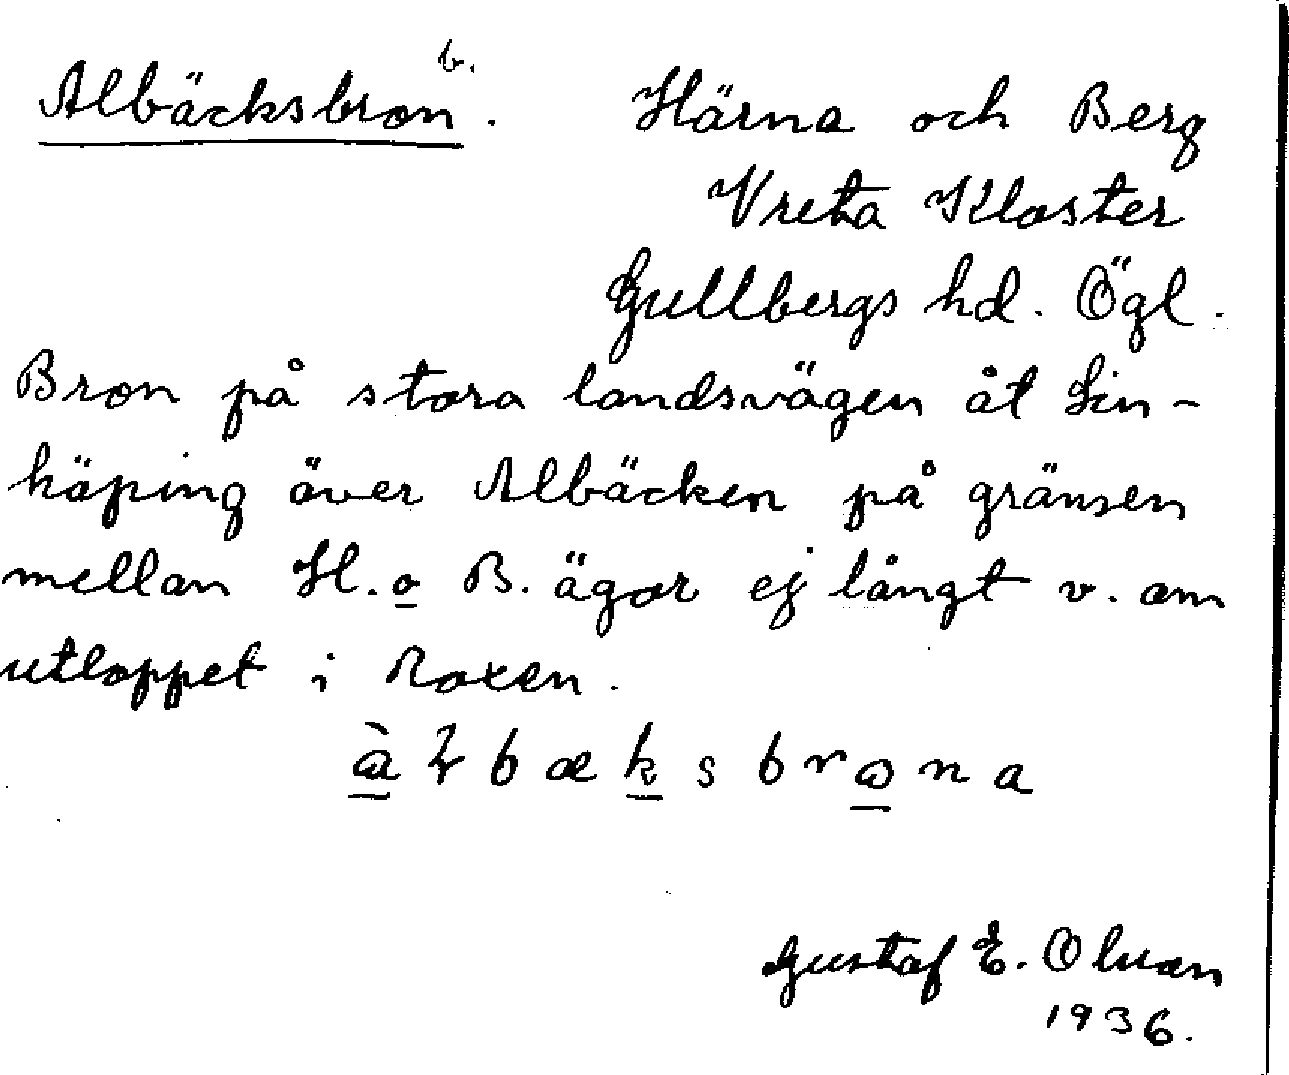 Albäcksbron b. Härna och Berg
Vreta Kloster
Gullbergs hd. Ögl.
Bron på stora landsvägen åt Lin-
köping över Albäcken på gränsen
mellan H. o B. ägor ej långt v. om
utloppet i Roxen.
Gustaf E. Olson
1936.